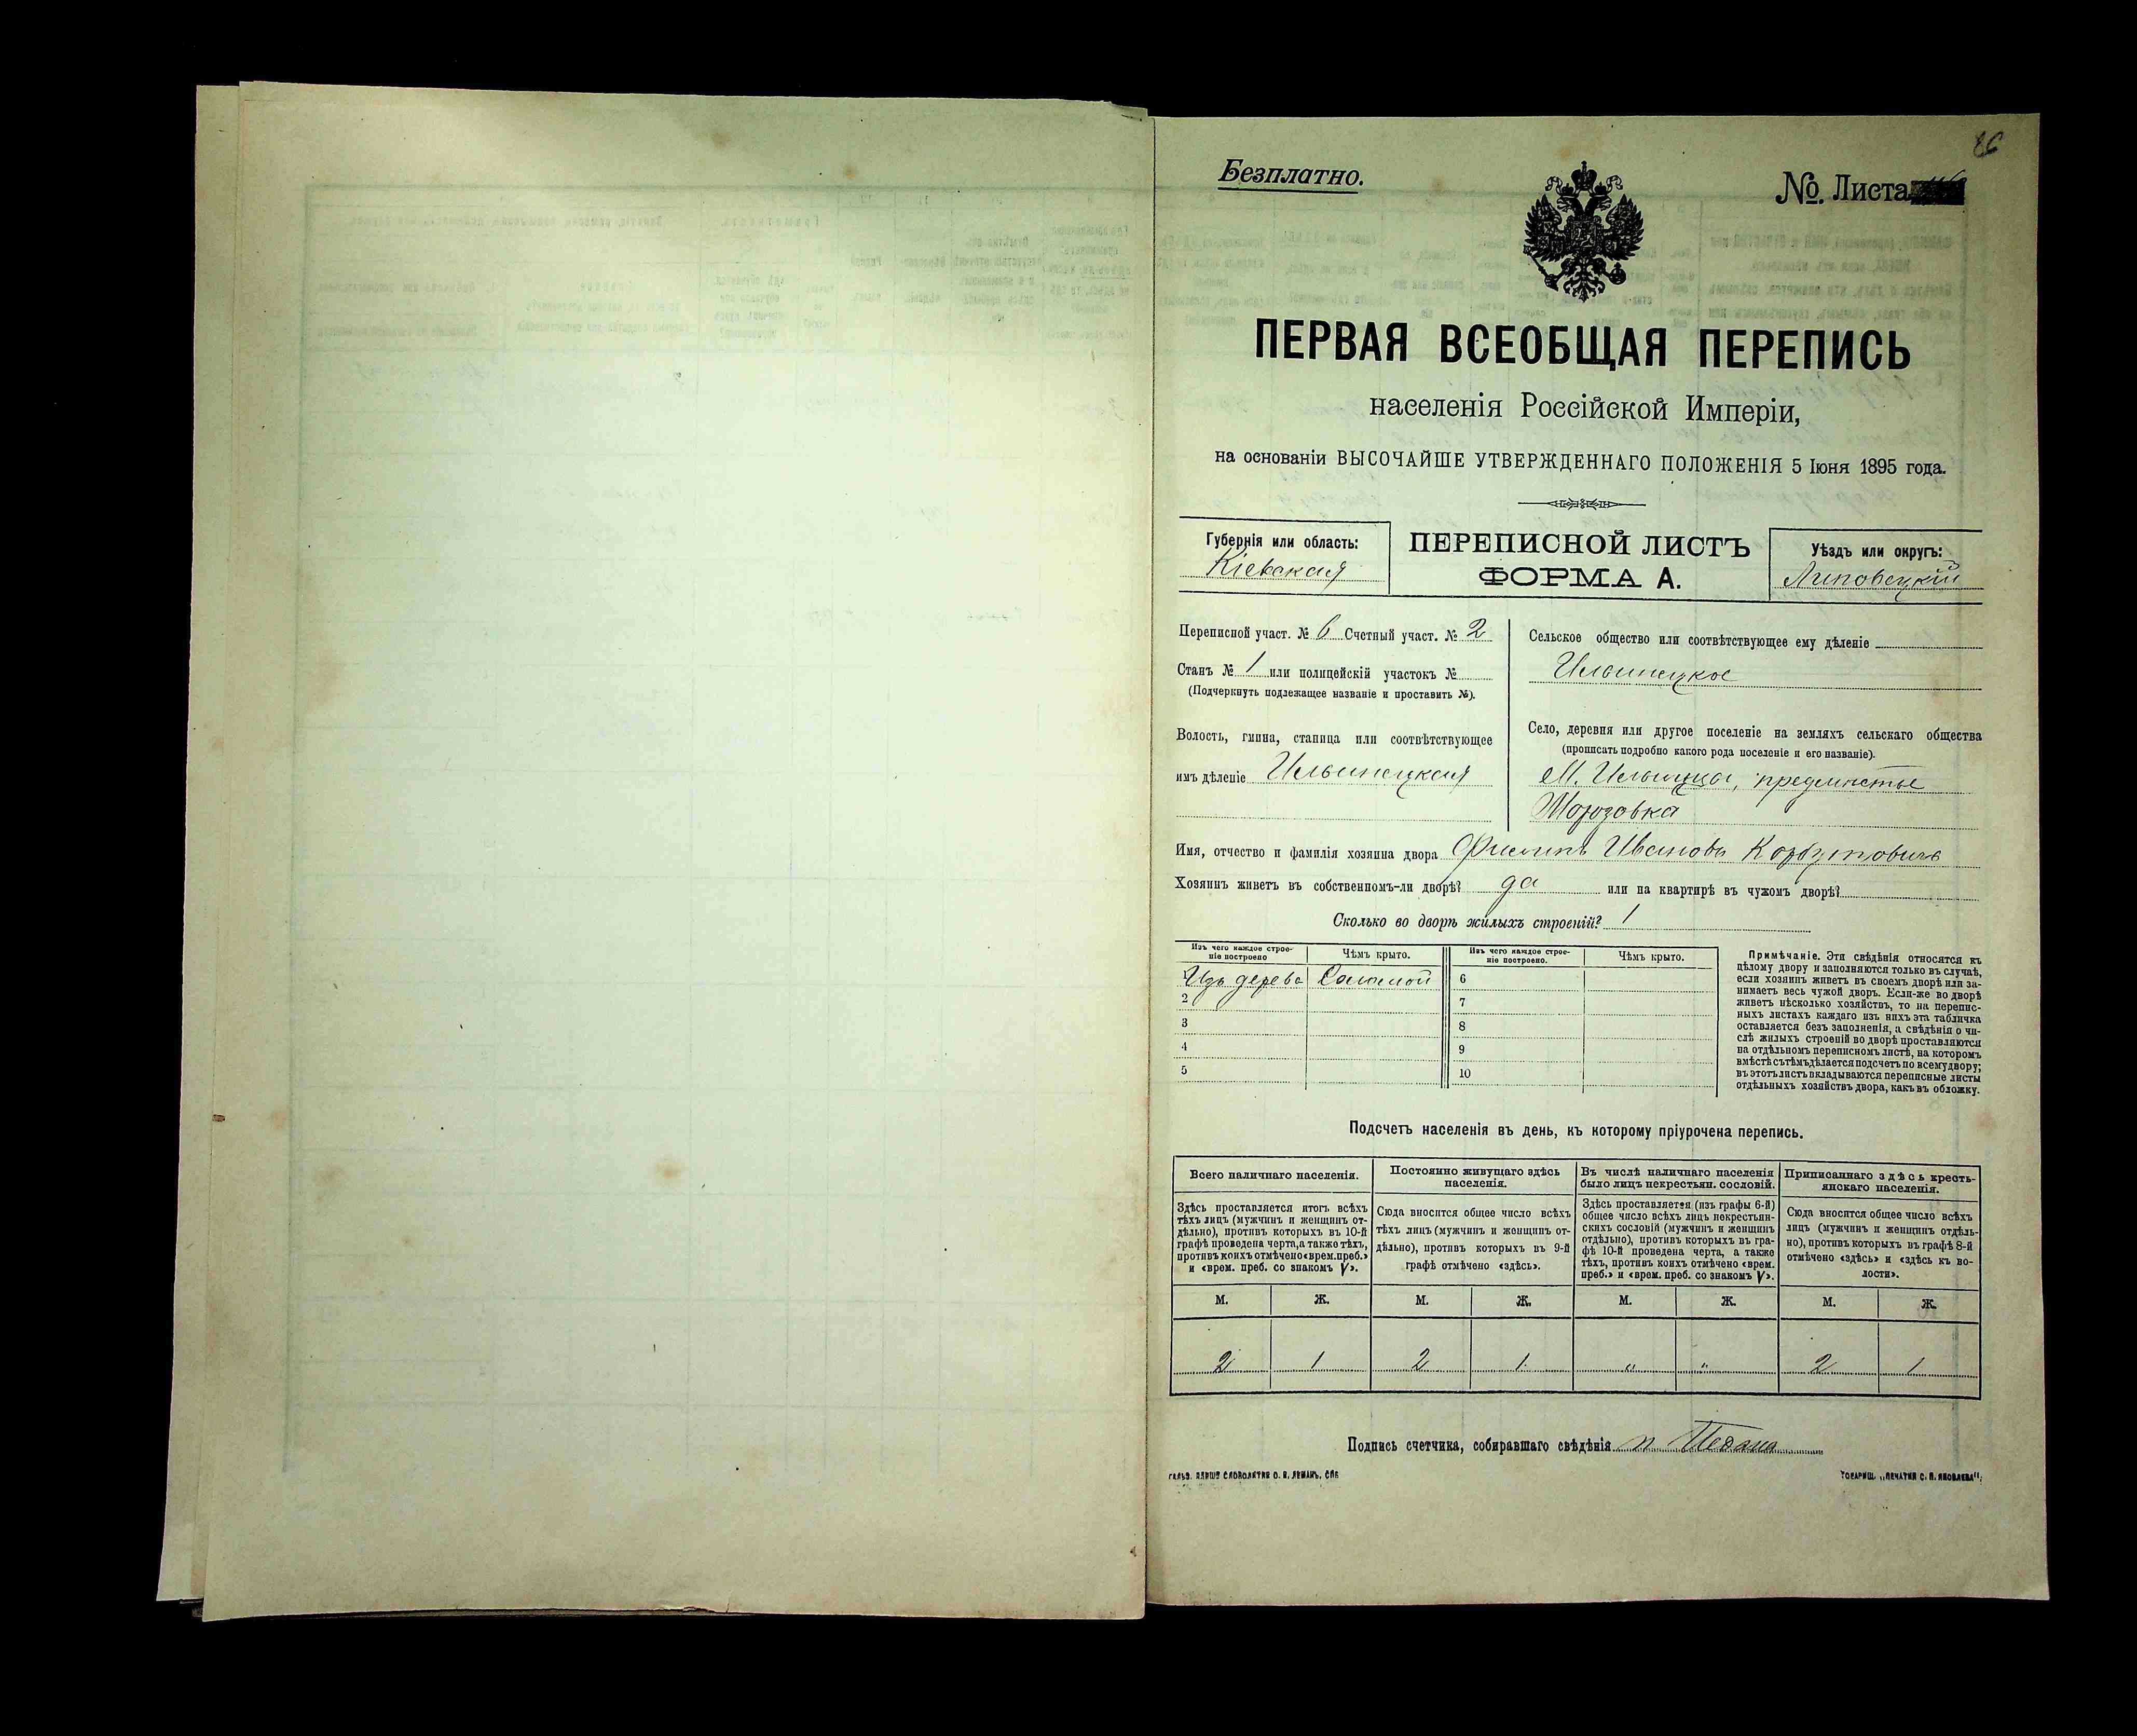 86
Безплатно.
№. Листа
ПЕРВАЯ ВСЕОБЩАЯ ПЕРЕПИСЬ
населенія Россійской Имперіи,
на основаніи ВЫСОЧАЙШЕ УТВЕРЖДЕННАГО ПОЛОЖЕНІЯ 5 Іюня 1895 года.
Губернія или область:
Кіевская
ПЕРЕПИСНОЙ ЛИСТЪ
ФОРМА А.
Уѣздъ или округъ:
Липовецкій
Переписной участ. № 6 Счетный участ. № 2
Станъ № 1 или полицейскій участокъ №
(Подчеркнуть подлежащее названіе и проставить №).
Волость, гмина, станица или соотвѣтствующее
имъ дѣленіе Ильинецкая
Сельское общество или соотвѣтствующее ему дѣленіе
Ильинецкое
Село, деревня или другое поселеніе на земляхъ сельскаго общества
(прописать подробно какого рода поселеніе и его названіе).
М. Ильинцы, предмѣстье
Морозовка
Имя, отчество и фамилія хозяина двора Филипъ Ивановъ
Хозяинъ живетъ въ собственномъ-ли дворѣ? да или на квартирѣ въ чужомъ дворѣ?
Сколько во дворѣ жилыхъ строеній? 1
Изъ чего каждое строе-
ніе построено
Чѣмъ крыто.
Изъ чего каждое строе-
ніе построено.
Чѣмъ крыто.
Изъ дерева Соломой 6
2 7
3 8
4 9
5 10
Примѣчаніе. Эти свѣдѣнія относятся къ
цѣлому двору и заполняются только въ случаѣ,
если хозяинъ живетъ въ своемъ дворѣ или за-
нимаетъ весь чужой дворъ. Если-же во дворѣ
живетъ нѣсколько хозяйствъ, то на перепис-
ныхъ листахъ каждаго изъ нихъ эта табличка
оставляется безъ заполненія, а свѣдѣнія о чи-
слѣ жилыхъ строеній во дворѣ проставляются
на отдѣльномъ переписномъ листѣ, на которомъ
вмѣстѣ съ тѣмъ дѣлается подсчетъ по всему двору;
въ этотъ листъ вкладываются переписные листы
отдѣльныхъ хозяйствъ двора, какъ въ обложку.
Подсчетъ населенія въ день, къ которому пріурочена перепись.
Всего наличнаго населенія.
Здѣсь проставляется итогъ всѣхъ
тѣхъ лицъ (мужчинъ и женщинъ от-
дѣльно), противъ которыхъ въ 10-й
графѣ проведена черта, а также тѣхъ,
противъ коихъ отмѣчено «врем. преб.»
и «врем. преб. со знакомъ V».
Постоянно живущаго здѣсь
населенія.
Сюда вносится общее число всѣхъ
тѣхъ лицъ (мужчинъ и женщинъ от-
дѣльно), противъ которыхъ въ 9-й
графѣ отмѣчено «здѣсь».
Въ числѣ наличнаго населенія
было лицъ некрестьян. сословій.
Здѣсь проставляется (изъ графы 6-й)
общее число всѣхъ лицъ некрестьян-
скихъ сословій (мужчинъ и женщинъ
отдѣльно), противъ которыхъ въ гра-
фѣ 10-й проведена черта, а также
тѣхъ, противъ коихъ отмѣчено «врем.
преб.» и «врем. преб. со знакомъ V».
Приписаннаго здѣсь кресть-
янскаго населенія.
Сюда вносится общее число всѣхъ
лицъ (мужчинъ и женщинъ отдѣль-
но), противъ которыхъ въ графѣ 8-й
отмѣчено «здѣсь» и «здѣсь къ во-
лости».
М. Ж. М. Ж. М. Ж. М. Ж.
2 1 2 1 " " 2 1
Подпись счетчика, собиравшаго свѣдѣнія
ГАЛЬВ. КЛИШЕ СЛОВОЛИТНИ О. И. ЛЕМАНЪ, СПБ
ТОВАРИЩ. „ПЕЧАТНЯ С. П. ЯКОВЛЕВА"